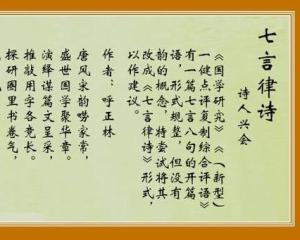 七言律诗
诗人兴会
《国学研究》《(新型)
一健点评复制综合评语》
有一篇七言八句的开篇
语,形式规整,但没有
韵的概念,特尝试将其
改成《七言律诗》形式,
以作建议。
作者:呼正林
唐风宋韵唠家常,
盛世国学聚华章。
演绎谋篇文呈采,
推敲用字各竞长。
探研圈里书卷气,